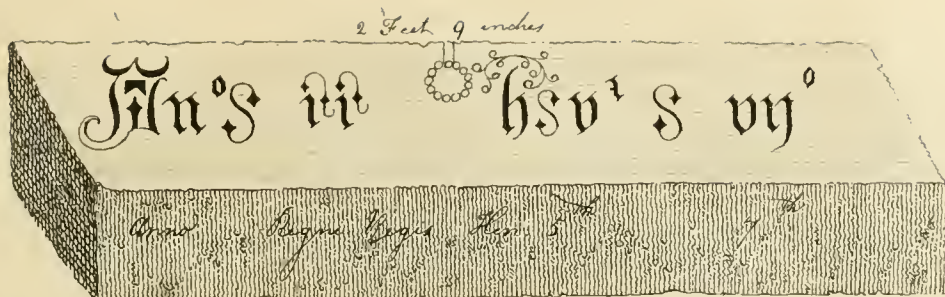 2 Feet 9 inches
An°s ii hsvᶻ s vij°
Anno Regni Regis Hen 5th 7th